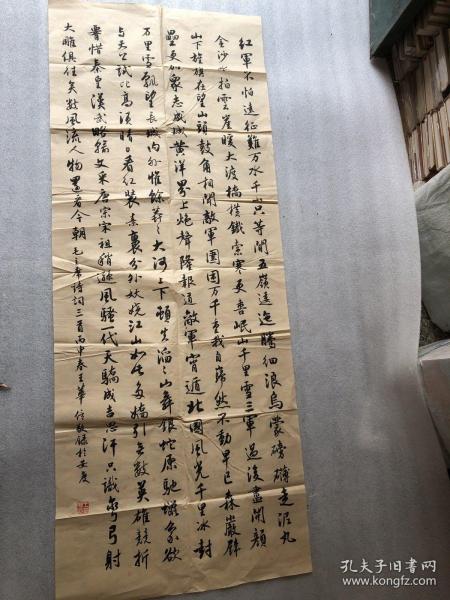 红軍不怕遠征難万水千山只等閒五嶺逶迤騰細浪烏蒙磅礴走泥丸
金沙水拍雲崖暖大渡橋橫鐵索寒更喜岷山千里雪三軍過後盡開顏
山下旌旗在望山頭鼓角相聞敵軍圍困万千重我自巋然不動早已森嚴壁
壘更加衆志成城黄洋界上炮聲隆報道敵軍宵遁北國風光千里冰封
万里雪飄望長城内外惟餘莽々大河上下頓失滔々山舞銀蛇原馳蠟象欲
与天公試比高須晴日看红裝素裹分外妖娆江山如此多嬌引无數英雄競折
腰惜秦皇漢武略輸文采唐宗宋祖稍遜風騷一代天驕成吉思汗只識彎弓射
大雕俱往矣數風流人物還看今朝 毛主席詩詞三首丙申春王華
孔夫子旧书网
www.kongfz.com